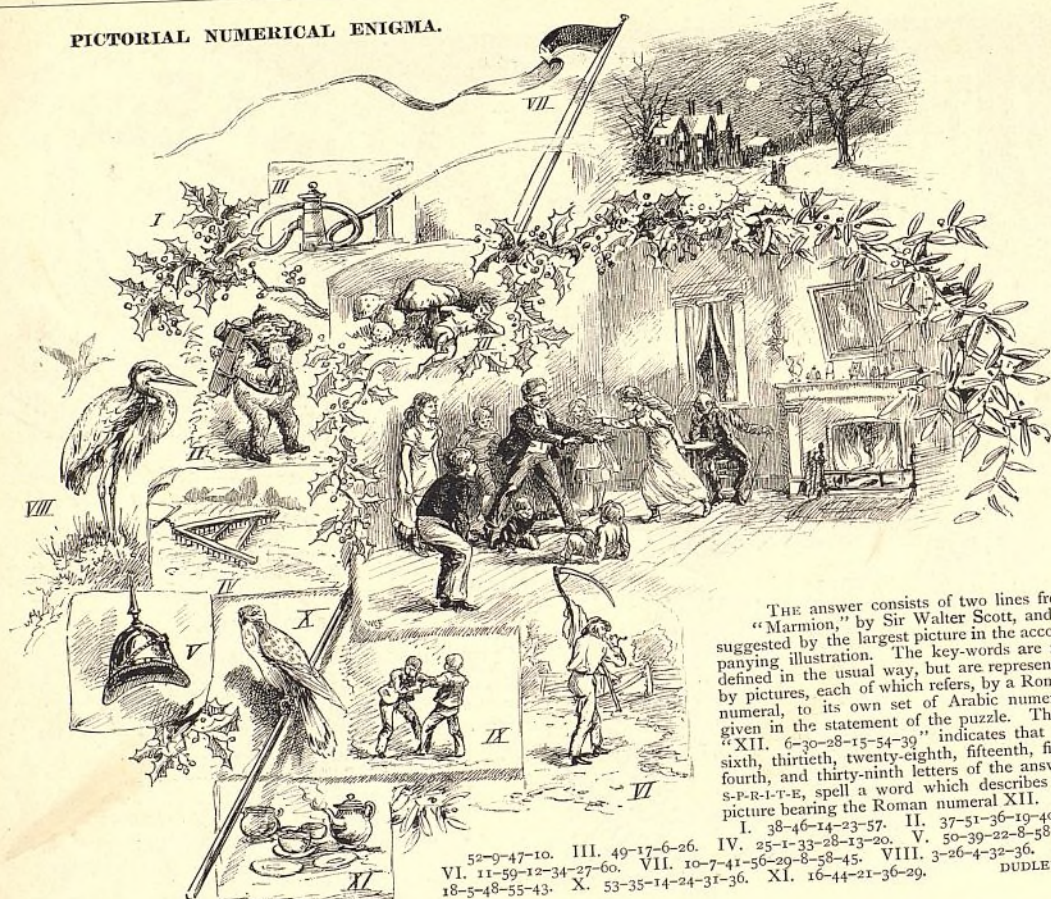 PICTORIAL NUMERICAL ENIGMA.
VII
III
I
XII
II
VIII
IV
X
V
IX
VI
XI
THE answer consists of two lines fro
"Marmion," by Sir Walter Scott, and
suggested by the largest picture in the acco
panying illustration. The key-words are
defined in the usual way, but are represen
by pictures, each of which refers, by a Rom
numeral, to its own set of Arabic nume
given in the statement of the puzzle. Th
"XII. 6-30-28-15-54-39" indicates that
sixth, thirtieth, twenty-eighth, fifteenth, fi
fourth, and thirty-ninth letters of the answ
S-P-R-I-T-E, spell a word which describes
picture bearing the Roman numeral XII.
I. 38-46-14-23-57. II. 37-51-36-19-40
52-9-47-10. III. 49-17-6-26. IV. 25-1-33-28-13-20. V. 50-39-22-8-58
VI. 11-59-12-34-27-60. VII. 10-7-41-56-29-8-58-45. VIII. 3-26-4-32-36.
18-5-48-55-43. X. 53-35-14-24-31-36. XI. 16-44-21-36-29. DUDLE